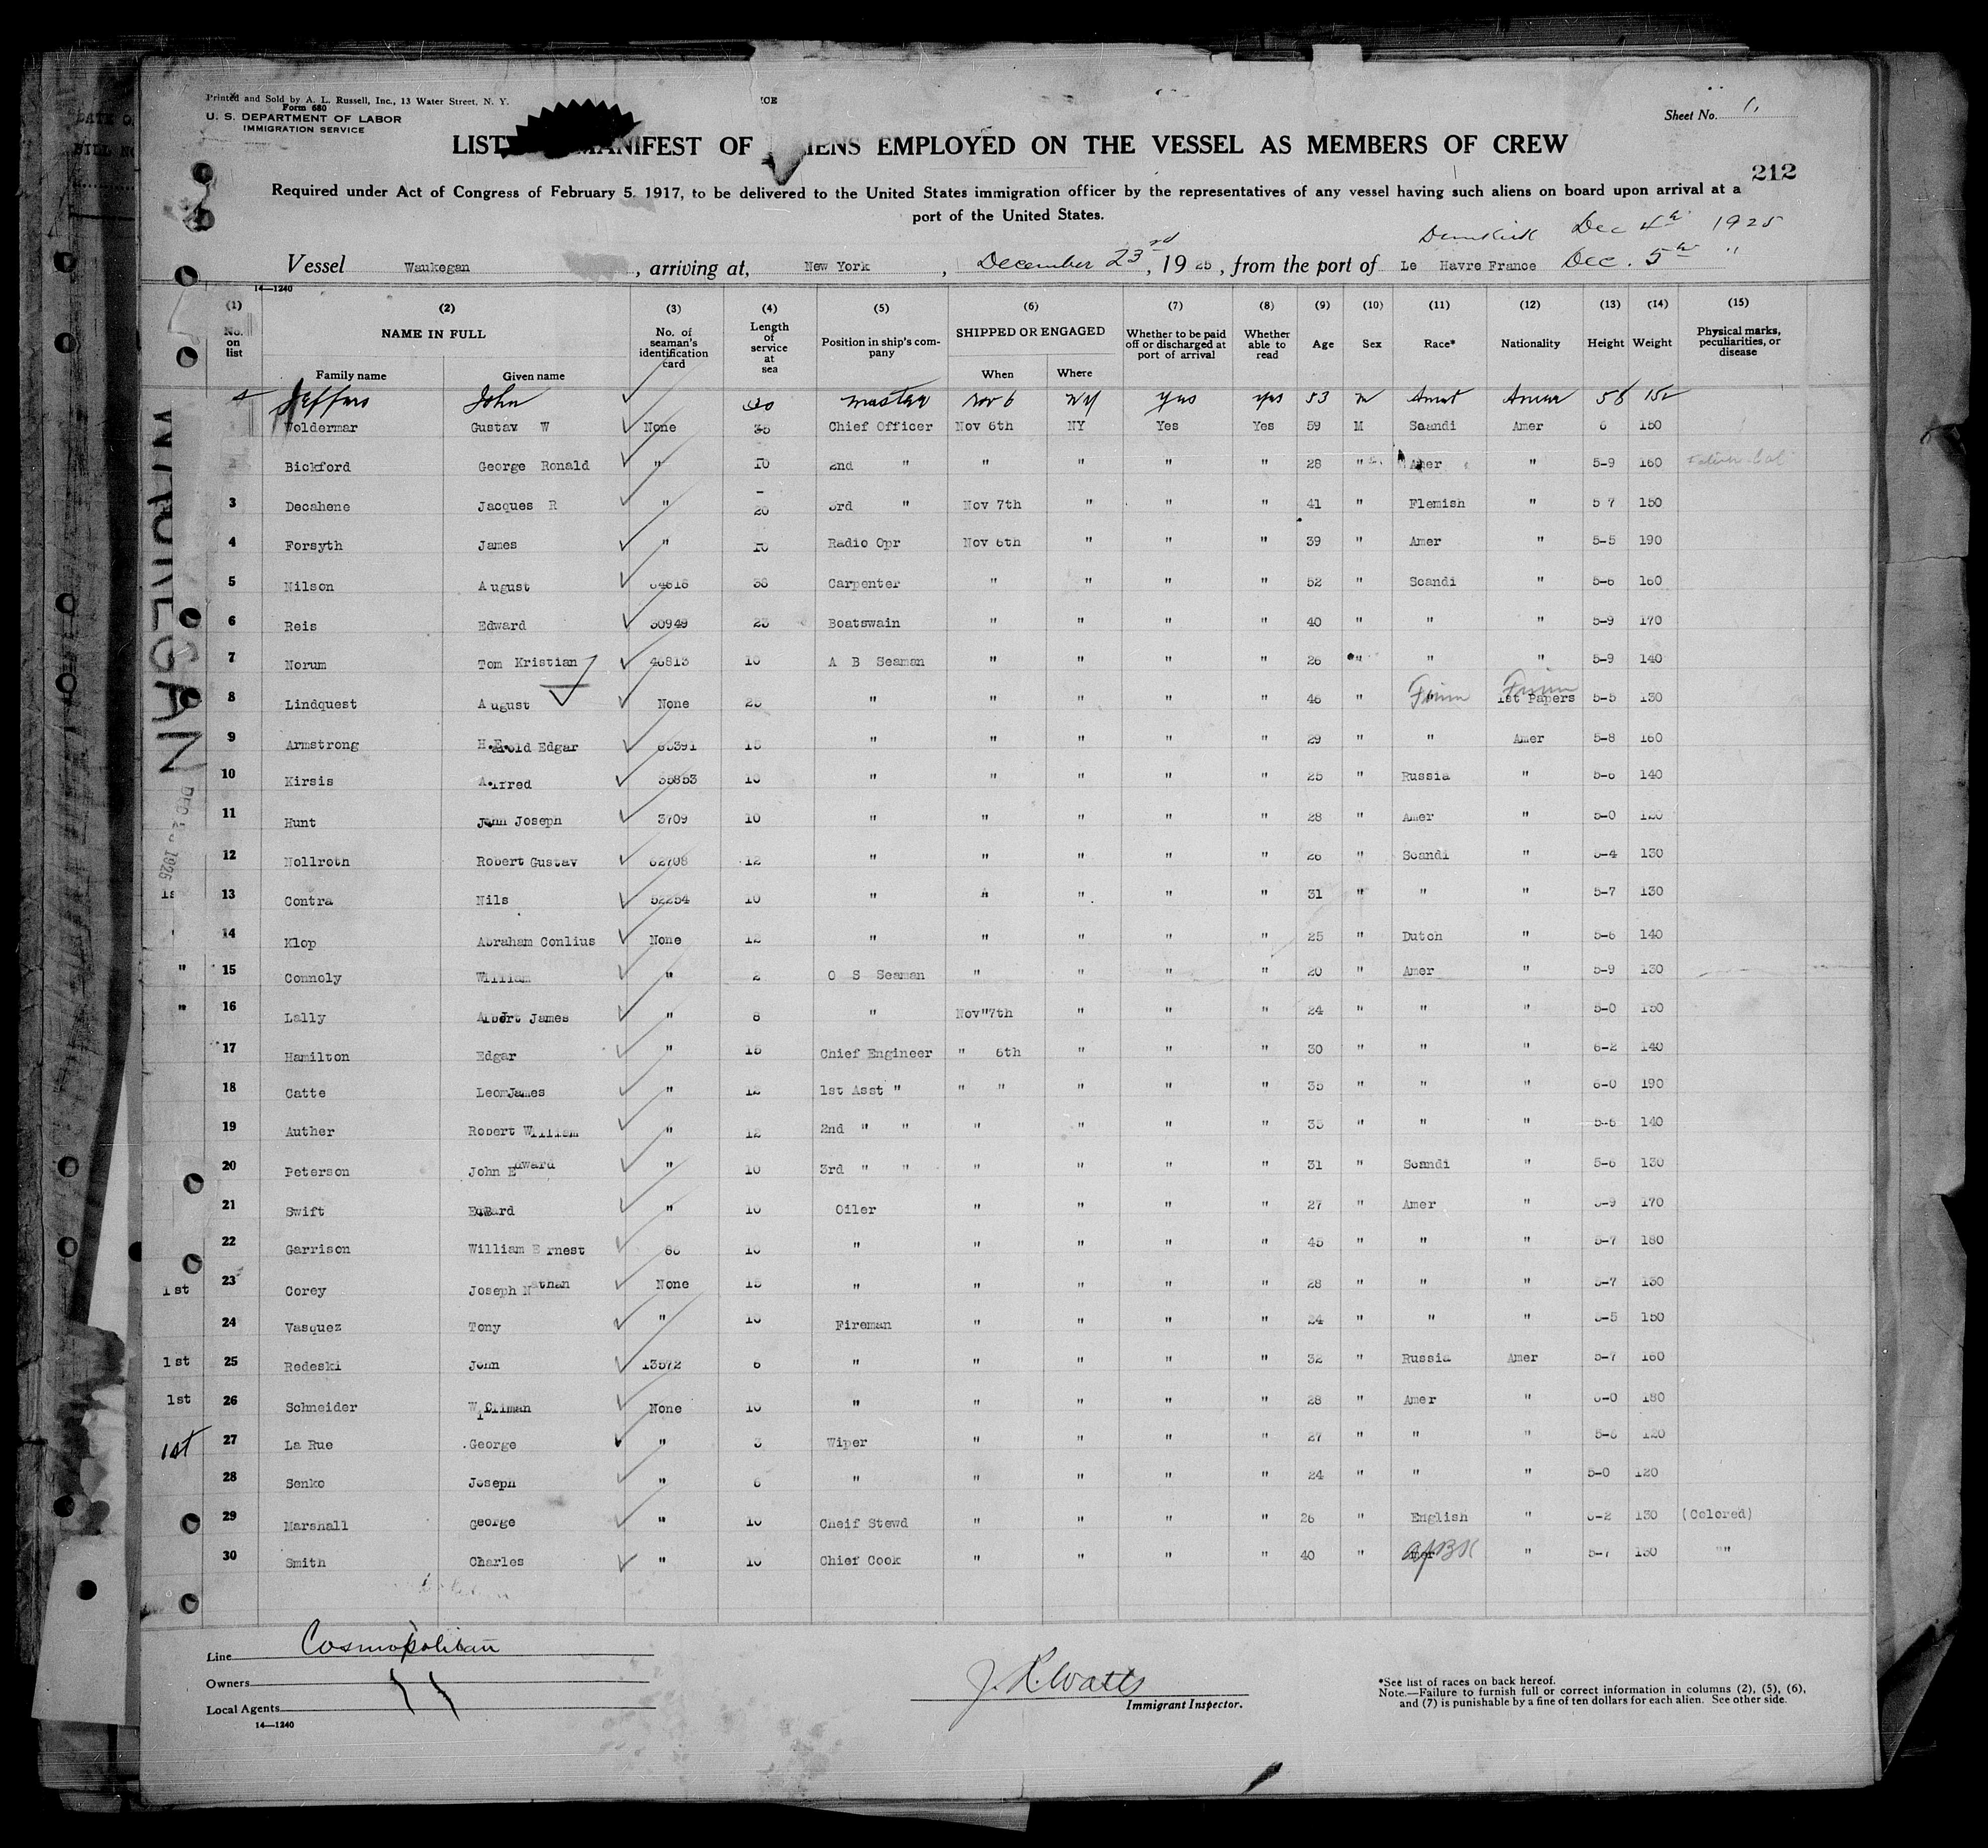 Printed and Sold by A. L. Russell, Inc., 13 Water Street, N. Y.
Form 680
U. S. DEPARTMENT OF LABOR
IMMIGRATION SERVICE
Sheet No. 1,
LIST MANIFEST OF ALIENS EMPLOYED ON THE VESSEL AS MEMBERS OF CREW
212
Required under Act of Congress of February 5, 1917, to be delivered to the United States immigration officer by the representatives of any vessel having such aliens on board upon arrival at a
port of the United States.
Dunkirk Dec 4th 1925
Vessel Waukegan , arriving at, New York , December 23rd , 19 25 , from the port of Le Havre France Dec. 5th "
14—1240
(1) (2) (3) (4) (5) (6) (7) (8) (9) (10) (11) (12) (13) (14) (15)
No. on list NAME IN FULL Family name Given name No. of seaman's identification card Length of service at sea Position in ship's company SHIPPED OR ENGAGED When Where Whether to be paid off or discharged at port of arrival Whether able to read Age Sex Race* Nationality Height Weight Physical marks, peculiarities, or disease
Jeffers John master Nov 6 NY yes yes 53 m Amer Amer 5 8
Woldermar Gustav W None 35 Chief Officer Nov 6th NY Yes Yes 59 M Scandi Amer 6 150
2 Bickford George Ronald " 10 2nd " " " " " 28 " Amer " 5-9 160
3 Decahene Jacques R " 20 3rd " Nov 7th " " " 41 " Flemish " 5 7 150
4 Forsyth James " 10 Radio Opr Nov 6th " " " 39 " Amer " 5-5 190
5 Nilson August 64616 38 Carpenter " " " " 52 " Scandi " 5-6 160
6 Reis Edward 30949 23 Boatswain " " " " 40 " " " 5-9 170
7 Norum Tom Kristian 46813 10 A B Seaman " " " " 26 " " " 5-9 140
8 Lindquest August None 25 " " " " " 46 " Finn Finn 1st Papers 5-5 130
9 Armstrong Harold Edgar 15 " " " " " 29 " " Amer 5-8 160
10 Kirsis Alfred 35853 10 " " " " " 25 " Russia " 5-6 140
11 Hunt John Joseph 3709 10 " " " " " 28 " Amer " 5-0 120
12 Nollroth Robert Gustav 62708 12 " " " " " 26 " Scandi " 5-4 130
13 Contra Nils 52254 10 " " " " " 31 " " " 5-7 130
14 Klop Abraham Conlius None 12 " " " " " 25 " Dutch " 5-6 140
" 15 Connoly William " 2 O S Seaman " " " " 20 " Amer " 5-9 130
" 16 Lally Albert James " 8 " Nov"7th " " " 24 " " " 5-0 150
17 Hamilton Edgar " 15 Chief Engineer " 6th " " " 30 " " " 6-2 140
18 Catte Leon James " 12 1st Asst " " " " " " 35 " " " 6-0 190
19 Auther Robert William " 12 2nd " " " " " " 35 " " " 5-6 140
20 Peterson John Edward " 10 3rd " " " " " " 31 " Scandi " 5-6 130
21 Swift Edward " 10 Oiler " " " " 27 " Amer " 5-9 170
22 Garrison William Ernest 10 " " " " " 45 " " " 5-7 180
1st 23 Corey Joseph Nathan None 15 " " " " " 28 " " " 5-7 130
24 Vasquez Tony " 10 Fireman " " " " 24 " " " 5-5 150
1st 25 Redeski John 13572 6 " " " " " 32 " Russia Amer 5-7 160
1st 26 Schneider None 10 " " " " " 28 " Amer " 6-0 180
1st 27 La Rue George " 3 Wiper " " " " 27 " " " 5-6 120
28 Senko Joseph " 6 " " " " " 24 " " " 5-0 120
29 Marshall George " 10 Cheif Stewd " " " " 26 " English " 130 (Colored)
30 Smith Charles " 10 Chief Cook " " " " 40 " Af BK " 5-7 130 ""
WAUKEGAN
1925
Line Cosmopolitan
Owners
Local Agents
14—1240
J. R. Watts
Immigrant Inspector.
*See list of races on back hereof.
Note.—Failure to furnish full or correct information in columns (2), (5), (6),
and (7) is punishable by a fine of ten dollars for each alien. See other side.